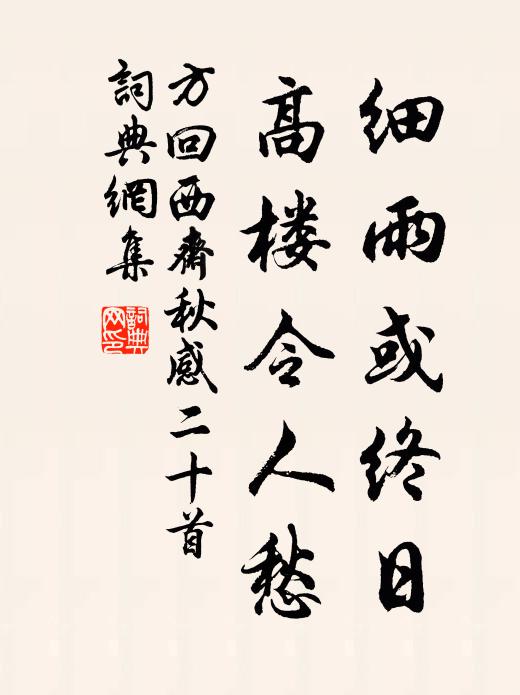 细雨或终日
高楼令人愁
方回西齋秋感二十首
詞典網集
詞典网印